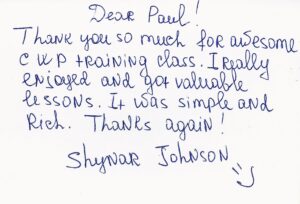 Dear Paul!
Thank you so much for awesome
CWP training class. I really
enjoyed and got valuable
lessons. It was simple and
Rich. Thanks again!
Shynar Johnson